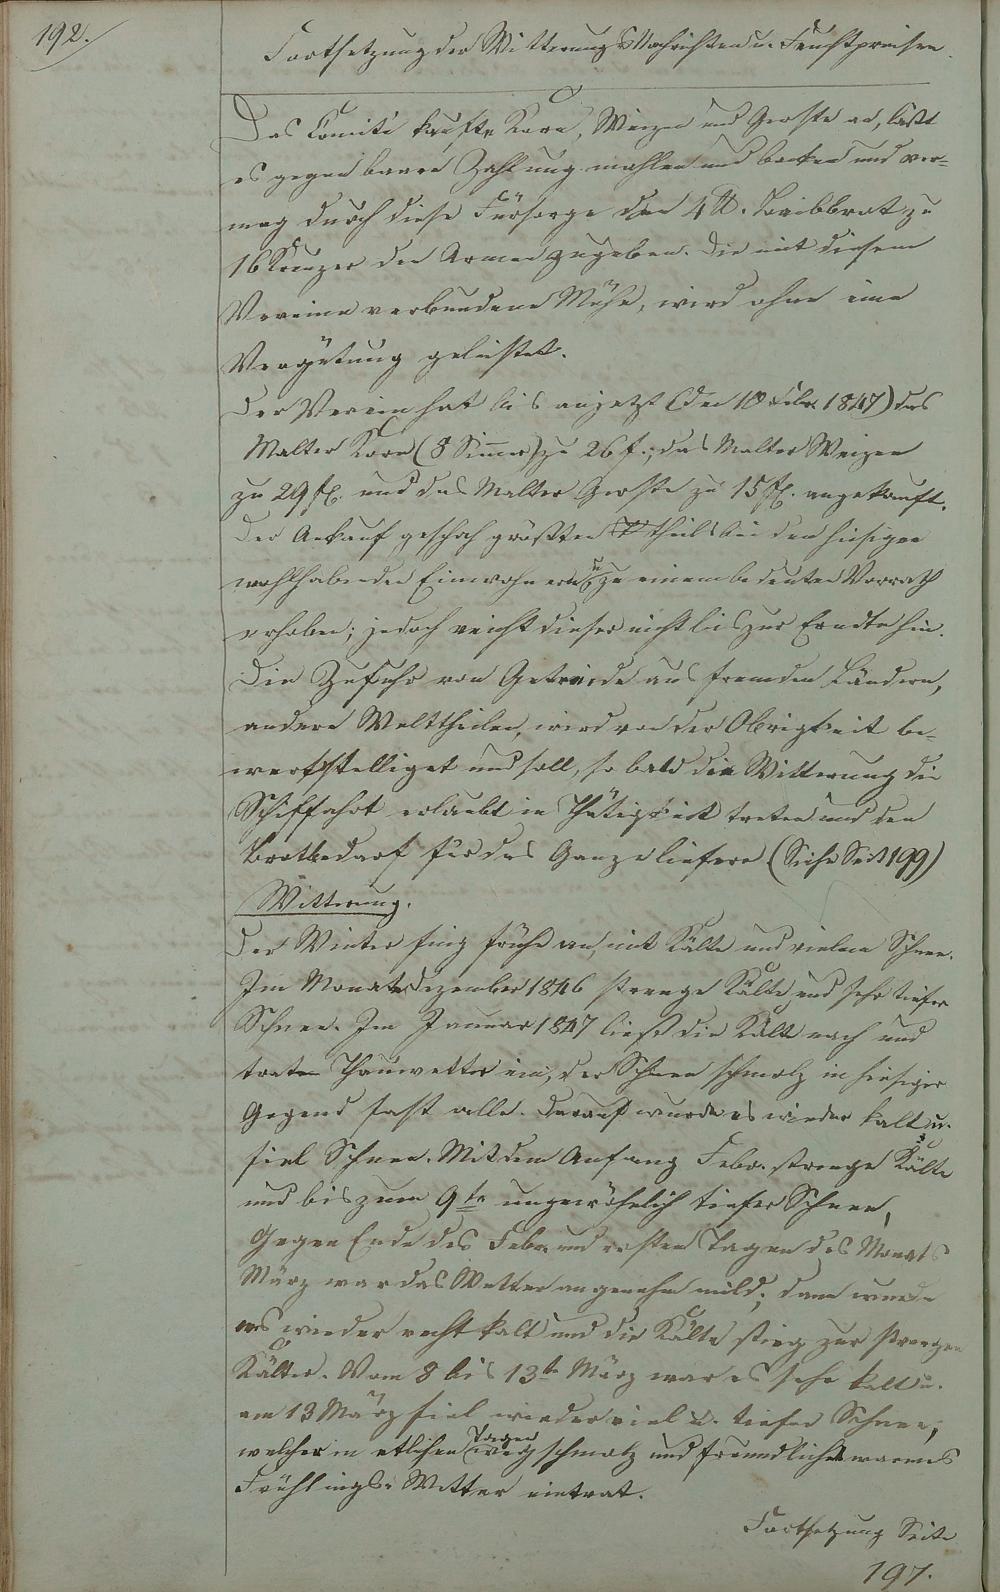 192.
Fortsetzung der Witterungs Nachrichten u. Fruchtpreisen.
Das Comité kaufte Korn, Weizen und Gerste an, läßt
es gegen baare Zahlung mahlen und backen und ver-
mag durch diese Fürsorge den 4 ℔. Laibbrot zu
16 Kreuzer den Armen zugeben. Die mit diesem
Vereine verbundene Mühe, wird ohne eine
Vergütung geleistet.
Der Verein hat bis anjetzt (den 10 Febr. 1847) das
Malter Korn (8 Simmer) zu 26 f.; das Malter Weizen
zu 29 fl. und das Malter Gerste zu 15 fl. angekauft.
Der Ankauf geschah größten theils bei den hiesigen
wohlhabenden Einwohnern u zu einem bedeuten Vorrath
erhoben; jedoch reicht dieser nicht bis zur Erndte hin.
Die Zufuhr von Getreide aus fremden Ländern,
andern Welttheilen, wird von der Obrigkeit be-
werkstelliget und soll, so bald die Witterung die
Schiffahrt erlaubt in Thätigkeit treten und den
Brotbedarf für das Ganze liefern (Siehe Seit 199)
Witterung.
Der Winter fing frühe an, mit Kälte und vielem Schnee.
Im Monate Dezember 1846 strenge Kälte und sehr tiefer
Schnee. Im Januar 1847 ließ die Kälte nach und
trat Thauwetter ein, der Schnee schmolz in hiesiger
Gegend fast alle. Darauf wurde es wieder kalt u.
fiel Schnee. Mit dem Anfang Febr. strenge Kälte
und bis zum 9te ungewöhnlich tiefer Schnee,
Gegen Ende des Febr. und ersten Tagen des Monats
März war das Wetter angenehm mild; dann wurde
es wieder recht kalt und die Kälte stieg zur strengen
Kälte. Vom 8 bis 13te März war es sehr kalt u.
am 13 März fiel wieder viel u. tiefer Schnee;
welcher in etlichen Tagen weg schmolz und freundliches warmes
Frühlings-Wetter eintrat.
Fortsetzung Seite
197.